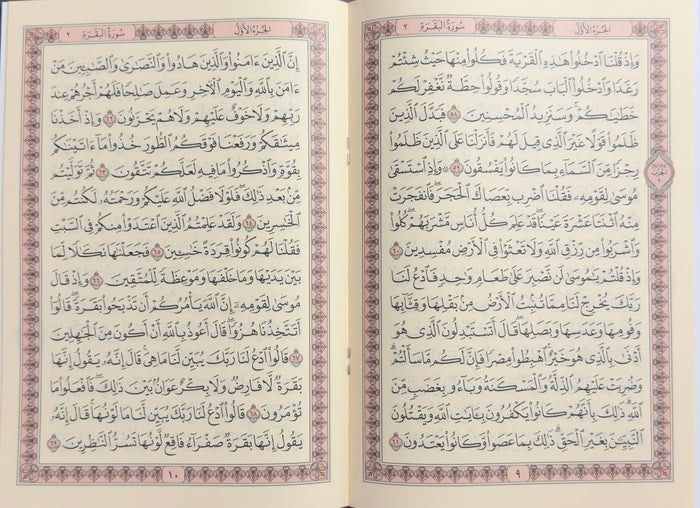 الجُزءُ الأَوَّلُ
سُورَةُ البَقَرَةِ ٢
وَإِذْ قُلْنَا ٱدْخُلُوا۟ هَٰذِهِ ٱلْقَرْيَةَ فَكُلُوا۟ مِنْهَا حَيْثُ شِئْتُمْ
رَغَدًا وَٱدْخُلُوا۟ ٱلْبَابَ سُجَّدًا وَقُولُوا۟ حِطَّةٌ نَّغْفِرْ لَكُمْ
خَطَٰيَٰكُمْ ۚ وَسَنَزِيدُ ٱلْمُحْسِنِينَ ٥٨ فَبَدَّلَ ٱلَّذِينَ
ظَلَمُوا۟ قَوْلًا غَيْرَ ٱلَّذِى قِيلَ لَهُمْ فَأَنزَلْنَا عَلَى ٱلَّذِينَ ظَلَمُوا۟
رِجْزًا مِّنَ ٱلسَّمَآءِ بِمَا كَانُوا۟ يَفْسُقُونَ ٥٩ ۞ وَإِذِ ٱسْتَسْقَىٰ
مُوسَىٰ لِقَوْمِهِۦ فَقُلْنَا ٱضْرِب بِّعَصَاكَ ٱلْحَجَرَ ۖ فَٱنفَجَرَتْ
مِنْهُ ٱثْنَتَا عَشْرَةَ عَيْنًا ۖ قَدْ عَلِمَ كُلُّ أُنَاسٍ مَّشْرَبَهُمْ ۖ كُلُوا۟
وَٱشْرَبُوا۟ مِن رِّزْقِ ٱللَّهِ وَلَا تَعْثَوْا۟ فِى ٱلْأَرْضِ مُفْسِدِينَ ٦٠
وَإِذْ قُلْتُمْ يَٰمُوسَىٰ لَن نَّصْبِرَ عَلَىٰ طَعَامٍ وَٰحِدٍ فَٱدْعُ لَنَا
رَبَّكَ يُخْرِجْ لَنَا مِمَّا تُنۢبِتُ ٱلْأَرْضُ مِنۢ بَقْلِهَا وَقِثَّآئِهَا
وَفُومِهَا وَعَدَسِهَا وَبَصَلِهَا ۖ قَالَ أَتَسْتَبْدِلُونَ ٱلَّذِى هُوَ
أَدْنَىٰ بِٱلَّذِى هُوَ خَيْرٌ ۚ ٱهْبِطُوا۟ مِصْرًا فَإِنَّ لَكُم مَّا سَأَلْتُمْ ۗ
وَضُرِبَتْ عَلَيْهِمُ ٱلذِّلَّةُ وَٱلْمَسْكَنَةُ وَبَآءُو بِغَضَبٍ مِّنَ
ٱللَّهِ ۗ ذَٰلِكَ بِأَنَّهُمْ كَانُوا۟ يَكْفُرُونَ بِـَٔايَٰتِ ٱللَّهِ وَيَقْتُلُونَ
ٱلنَّبِيِّـۧنَ بِغَيْرِ ٱلْحَقِّ ۗ ذَٰلِكَ بِمَا عَصَوا۟ وَّكَانُوا۟ يَعْتَدُونَ ٦١
٩
الحزب
الجُزءُ الأَوَّلُ
سُورَةُ البَقَرَةِ ٢
إِنَّ ٱلَّذِينَ ءَامَنُوا۟ وَٱلَّذِينَ هَادُوا۟ وَٱلنَّصَٰرَىٰ وَٱلصَّٰبِـِٔينَ مَنْ
ءَامَنَ بِٱللَّهِ وَٱلْيَوْمِ ٱلْـَٔاخِرِ وَعَمِلَ صَٰلِحًا فَلَهُمْ أَجْرُهُمْ عِندَ
رَبِّهِمْ وَلَا خَوْفٌ عَلَيْهِمْ وَلَا هُمْ يَحْزَنُونَ ٦٢ وَإِذْ أَخَذْنَا
مِيثَٰقَكُمْ وَرَفَعْنَا فَوْقَكُمُ ٱلطُّورَ خُذُوا۟ مَآ ءَاتَيْنَٰكُم
بِقُوَّةٍ وَٱذْكُرُوا۟ مَا فِيهِ لَعَلَّكُمْ تَتَّقُونَ ٦٣ ثُمَّ تَوَلَّيْتُم
مِّنۢ بَعْدِ ذَٰلِكَ ۖ فَلَوْلَا فَضْلُ ٱللَّهِ عَلَيْكُمْ وَرَحْمَتُهُۥ لَكُنتُم مِّنَ
ٱلْخَٰسِرِينَ ٦٤ وَلَقَدْ عَلِمْتُمُ ٱلَّذِينَ ٱعْتَدَوْا۟ مِنكُمْ فِى ٱلسَّبْتِ
فَقُلْنَا لَهُمْ كُونُوا۟ قِرَدَةً خَٰسِـِٔينَ ٦٥ فَجَعَلْنَٰهَا نَكَٰلًا لِّمَا
بَيْنَ يَدَيْهَا وَمَا خَلْفَهَا وَمَوْعِظَةً لِّلْمُتَّقِينَ ٦٦ وَإِذْ قَالَ
مُوسَىٰ لِقَوْمِهِۦٓ إِنَّ ٱللَّهَ يَأْمُرُكُمْ أَن تَذْبَحُوا۟ بَقَرَةً ۖ قَالُوٓا۟
أَتَتَّخِذُنَا هُزُوًا ۖ قَالَ أَعُوذُ بِٱللَّهِ أَنْ أَكُونَ مِنَ ٱلْجَٰهِلِينَ
٦٧ قَالُوا۟ ٱدْعُ لَنَا رَبَّكَ يُبَيِّن لَّنَا مَا هِىَ ۚ قَالَ إِنَّهُۥ يَقُولُ إِنَّهَا
بَقَرَةٌ لَّا فَارِضٌ وَلَا بِكْرٌ عَوَانٌۢ بَيْنَ ذَٰلِكَ ۖ فَٱفْعَلُوا۟ مَا
تُؤْمَرُونَ ٦٨ قَالُوا۟ ٱدْعُ لَنَا رَبَّكَ يُبَيِّن لَّنَا مَا لَوْنُهَا ۚ قَالَ إِنَّهُۥ
يَقُولُ إِنَّهَا بَقَرَةٌ صَفْرَآءُ فَاقِعٌ لَّوْنُهَا تَسُرُّ ٱلنَّٰظِرِينَ ٦٩
١٠